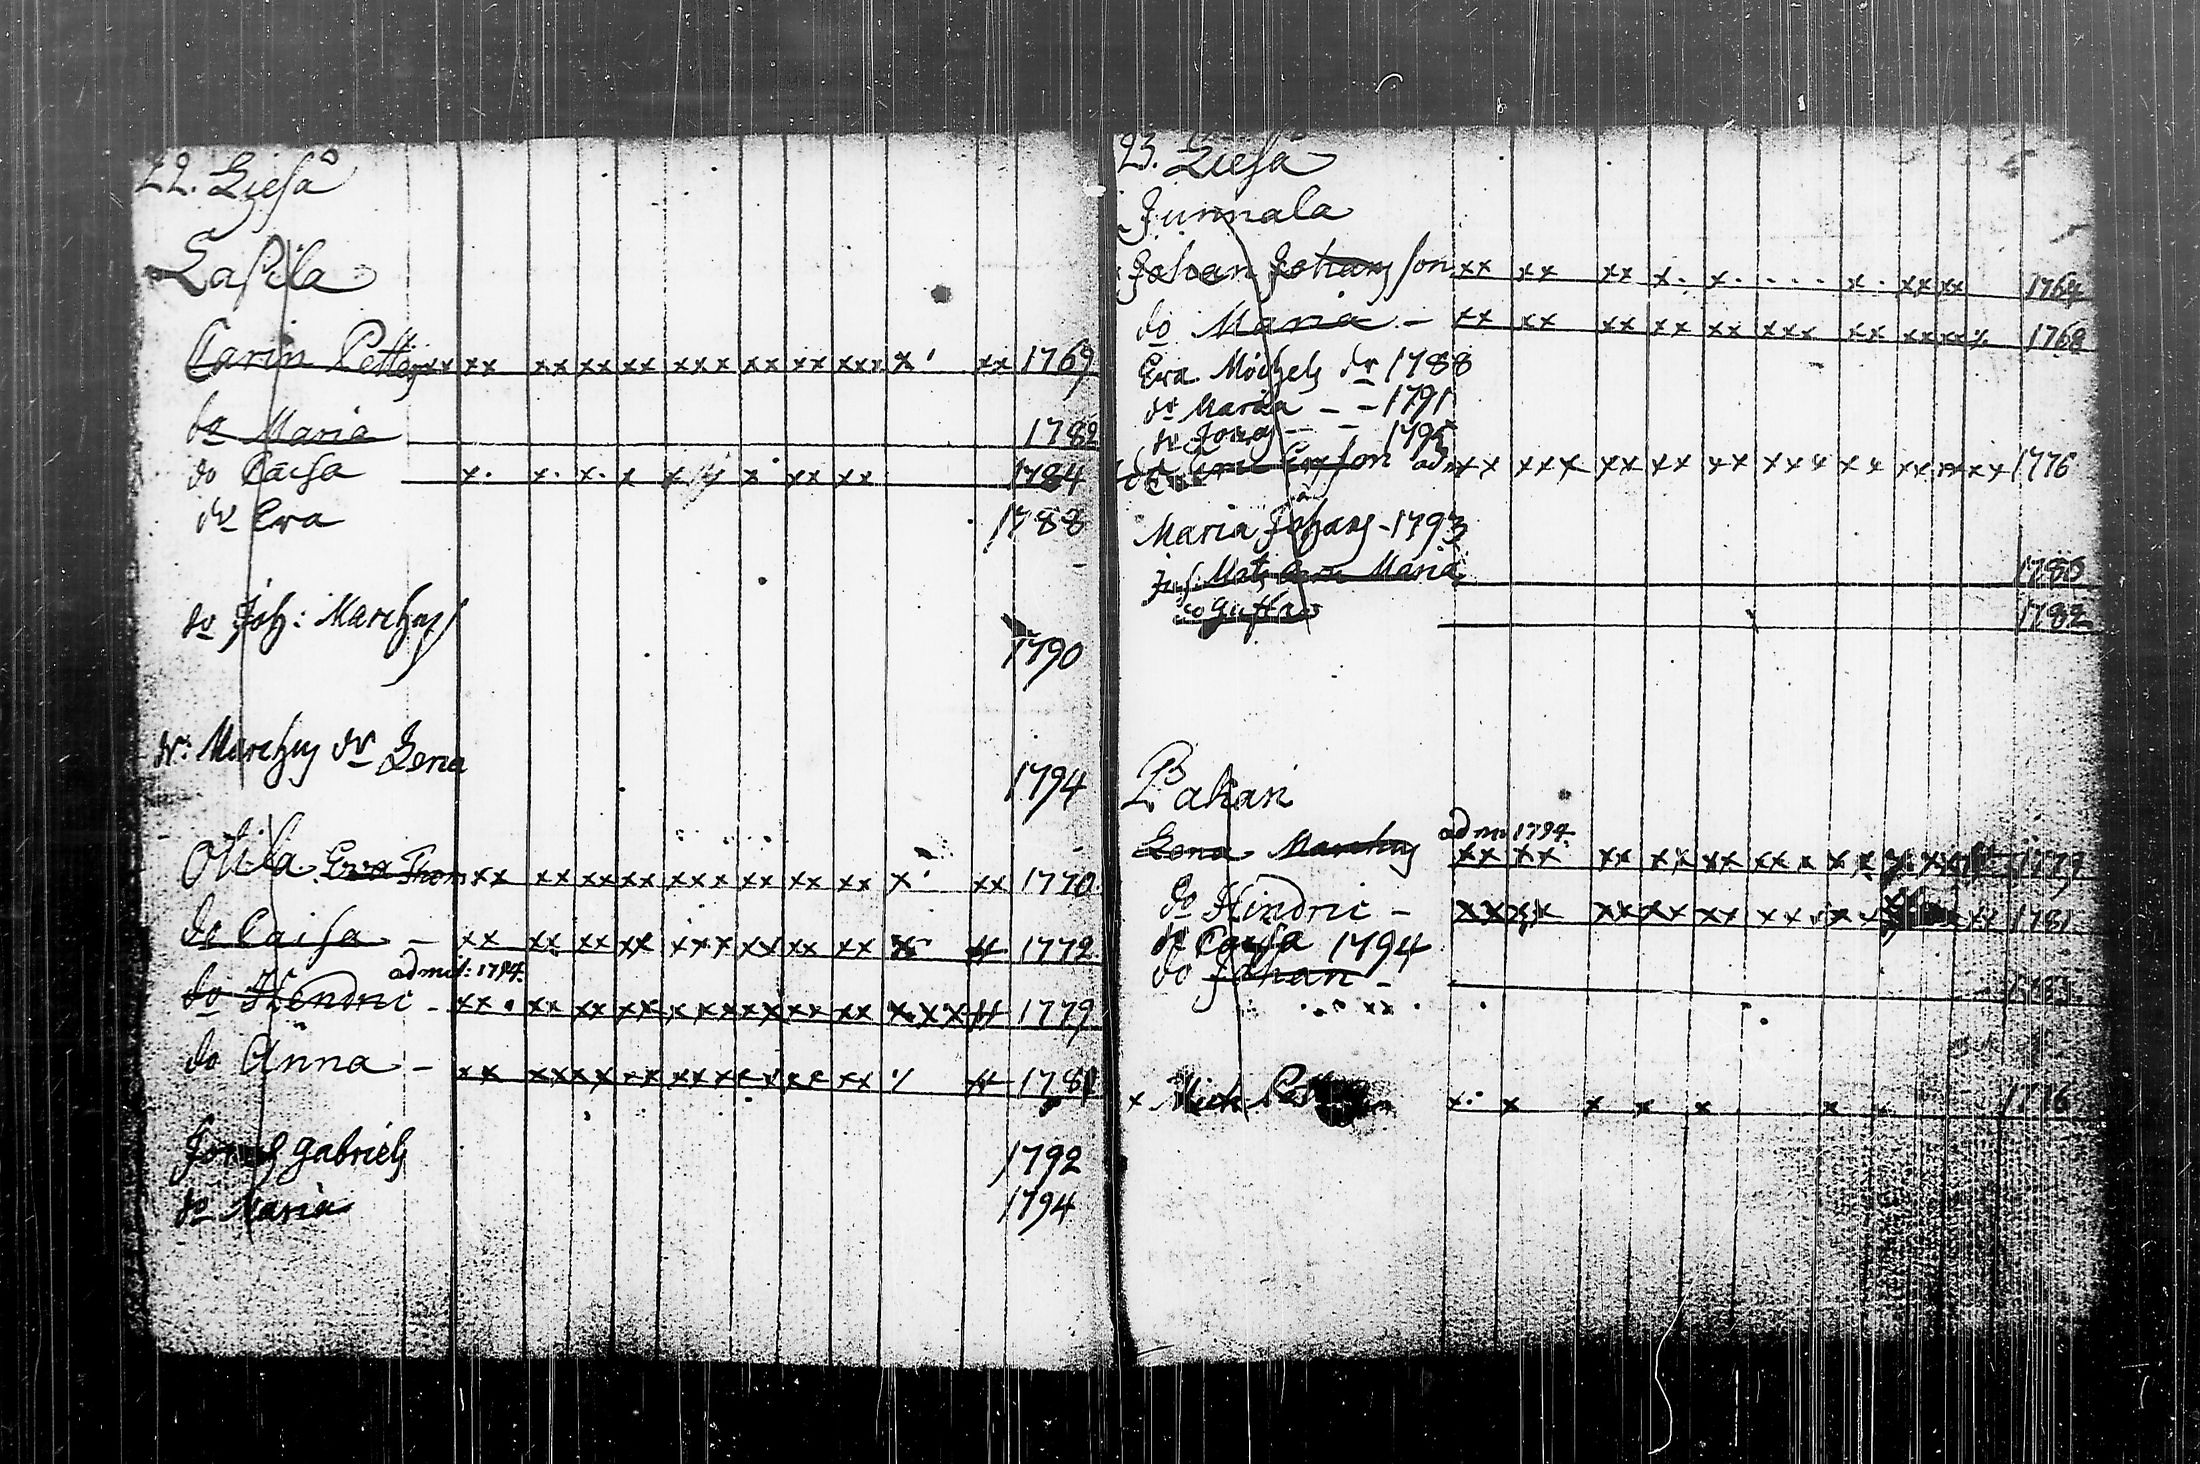 22. Lieså
Lassila
Carin Petters xx xx xx xx xx xxx xx xx xxx x xx 1769
do Maria 1782
do Caisa x. x. x. x x x xx xx 1784
do Eva 1788
do Joh: Marchus 1790
do: Marchus dr Lena 1794
Otila Eva Thom xx xx xx xx xxx xx xx xx x. xx 1770.
do Caisa - xx xx xx xx xxx xx xx xx x 1772.
admit: 1794.
do Hendric - xx xx xx xx xx xx xx xx xxx 1779
do Anna - xx xx xx xx xx xx xx xx 1781
Jonas Gabriels 1792
do Maria 1794
23. Lieså
Junnala
Johan Johansson xx xx xx x. x. . . . . x. xx xx 1764
do Maria - xx xx xx xx xx xxx xx xxxx 1768
Eva Michels dr 1788
do Maria - - 1791
do Jonas - - 1795
adm xx xxx xx xx xx xxx xx xx xx xx 1776
Maria Johans - 1793
Mats Maria 1786
do Gustava 1782
Pakari
adm 1794.
Lena Marchus xx xx xx xx xx xx x x x 1779
do Hindric - xxxx xx xx xx xx xx 1781
do Caisa 1794
do Johan -
x Mich x. x x x x x x 1776